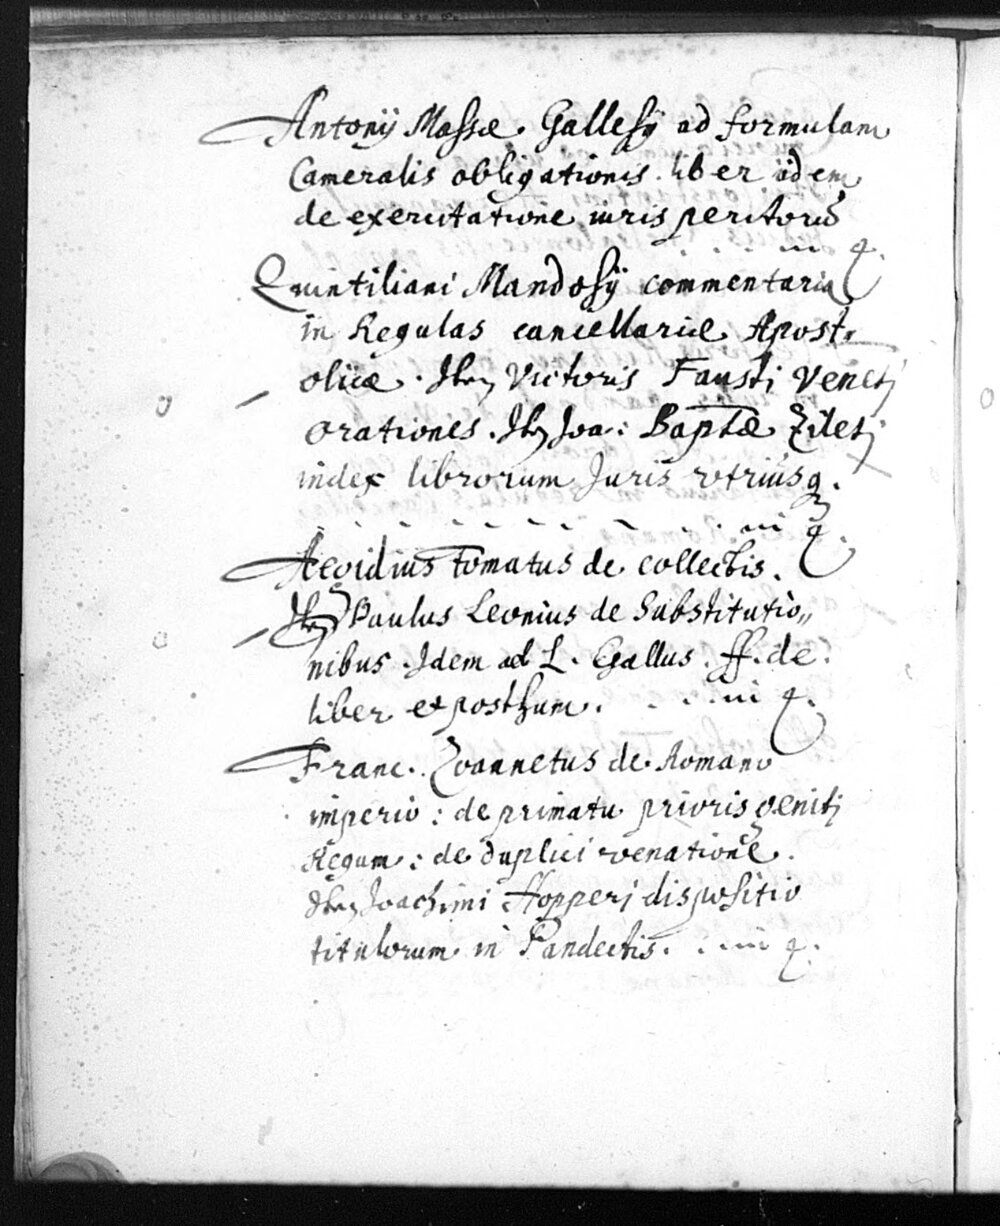 Antonij Massæ. Gallesij ad formulam
Cameralis obligationis. liber idem
de exercitatione iurisperitorũ
. . . in 4.
Quintiliani Mandosij commentaria
in Regulas cancellariæ Apost,
olicæ. Itẽ Victoris Fausti Veneti
orationes. Itẽ Joa: Baptæ Zileti
index librorum Juris utriusq.
. . . in 4.
Aegidius Tomatus de collectis.
Itẽ Paulus Leonius de Substitutio,,
nibus. Idem ad L. Gallus. ff. de.
liber et posthum. . . . in 4.
Franc. Zoannetus de Romano
imperio: de primatu prioris geniti
Regum: de duplici venatione.
Itẽ Joachimi Hopperi dispositio
titulorum in Pandectis. . . in 4.